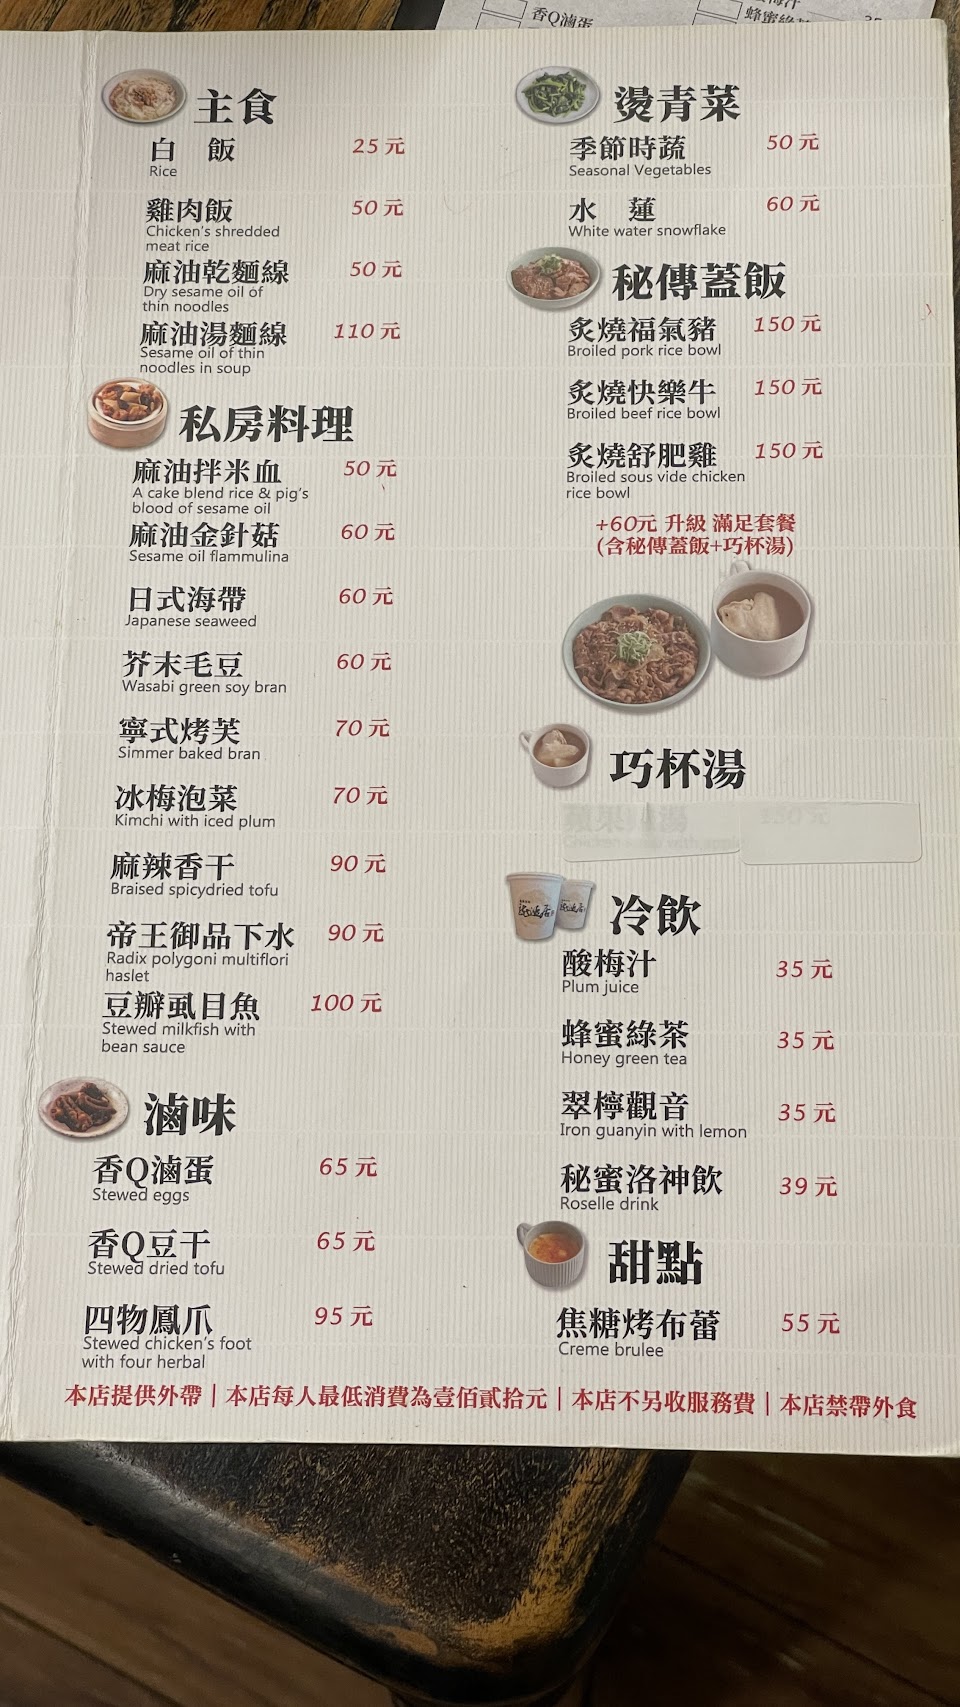 香Q滷蛋
主食
白 飯 25元
Rice
雞肉飯 50元
Chicken's shredded
meat rice
麻油乾麵線 50元
Dry sesame oil of
thin noodles
麻油湯麵線 110元
Sesame oil of thin
noodles in soup
私房料理
麻油拌米血 50元
A cake blend rice & pig's
blood of sesame oil
麻油金針菇 60元
Sesame oil flammulina
日式海帶 60元
Japanese seaweed
芥末毛豆 60元
Wasabi green soy bran
寧式烤芙 70元
Simmer baked bran
冰梅泡菜 70元
Kimchi with iced plum
麻辣香干 90元
Braised spicydried tofu
帝王御品下水 90元
Radix polygoni multiflori
haslet
豆瓣虱目魚 100元
Stewed milkfish with
bean sauce
滷味
香Q滷蛋 65元
Stewed eggs
香Q豆干 65元
Stewed dried tofu
四物鳳爪 95元
Stewed chicken's foot
with four herbal
燙青菜
季節時蔬 50元
Seasonal Vegetables
水 蓮 60元
White water snowflake
秘傳蓋飯
炙燒福氣豬 150元
Broiled pork rice bowl
炙燒快樂牛 150元
Broiled beef rice bowl
炙燒舒肥雞 150元
Broiled sous vide chicken
rice bowl
+60元 升級 滿足套餐
(含秘傳蓋飯+巧杯湯)
巧杯湯
冷飲
酸梅汁 35元
Plum juice
蜂蜜綠茶 35元
Honey green tea
翠檸觀音 35元
Iron guanyin with lemon
秘蜜洛神飲 39元
Roselle drink
甜點
焦糖烤布蕾 55元
Creme brulee
本店提供外帶｜本店每人最低消費為壹佰貳拾元｜本店不另收服務費｜本店禁帶外食